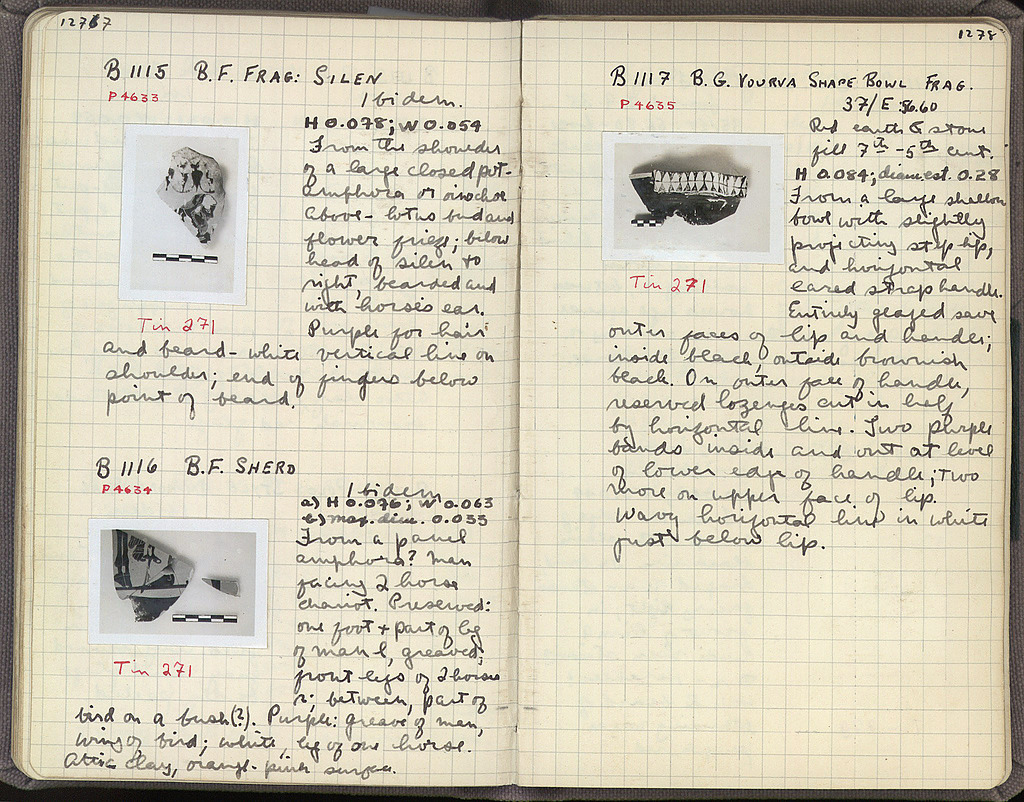 1277
B 1115 B.F. FRAG: SILEN
P 4633
Ibidem.
H 0.078; W 0.054
From the shoulder
of a large closed pot-
amphora or oinochoe
Above - lotus bud and
flower frieze; below
head of silen to
right, bearded and
with horse's ear.
Tin 271
Purple for hair
and beard - white vertical line on
shoulder; end of fingers below
point of beard.
B 1116 B.F. SHERD
P 4634
Ibidem
a) H 0.076; W 0.063
b) max. dim. 0.033
From a panel
amphora? Man
facing 2 horse
chariot. Preserved:
one foot + part of leg
of man l, greaved;
front legs of 2 horses
Tin 271
r; between, part of
bird on a bush(?). Purple: greave of man,
wing of bird; white, leg of one horse.
Attic clay, orange-pink surface.
1278
B 1117 B.G. VOURVA SHAPE BOWL FRAG.
P 4635
37/E :56.60
Red earth & stone
fill 7th - 5th cent.
H 0.084; diam. est. 0.28
From a large shallow
bowl with slightly
projecting step lip,
and horizontal
eared strap handle.
Tin 271
Entirely glazed save
outer faces of lip and handle;
inside black, outside brownish
black. On outer face of handle,
reserved lozenges cut in half
by horizontal line. Two purple
bands inside and out at level
of lower edge of handle; two
more on upper face of lip.
Wavy horizontal line in white
just below lip.